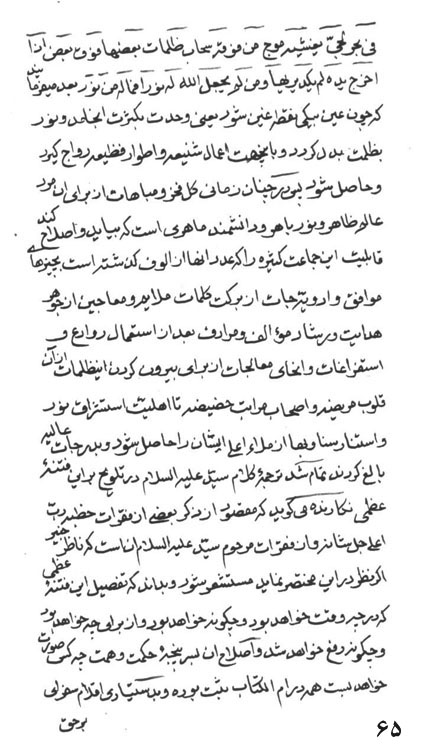 فی بحر لجیّ یغشیه موج من فوقه سحاب ظلمات بعضها فوق بعض اذا
اخرج یده لم یکد یریها ومن لم یجعل الله له نورا فما له من نور بعد میفرماید
که چون عین بیک نقطه غین شود یعنی وحدت بکثرت انجامد و نور
بظلمت بدل کردد و باینجهت اعمال شنیعه و اطوار فظیعه رواج کیرد
و حاصل شود پس در چنان زمانی کل فخر و مباهات از برای ان مرد
عالم ظاهر و نور باهر و دانشمند ماهری است که بیاید و اصلاح کند
قابلیت این جماعت کثیره را که عدد انها از الوف کذشته است بچیزهای
موافق و ادویه جات از برکت کلمات ملایم و معاجین از جوهر
هدایت و رشاد مؤالف و مرادف بعد از استعمال روادع و
استفراغات و انحای معالجات از برای بیرون کردن اینظلمات از آن
قلوب مریضه و اصحاب مراتب حضیضه تا اهلیت استشراق نور
و استنار سنا و بها از ملاء اعلی ایشان را حاصل شود و بدرجات عالیه
بالغ کردند تمام شد ترجمۀ کلام سیّد علیه السلام در تلویح براین فتنۀ
عظمی نکارنده می کوید که مقصود از ذکر بعضی از فقرات خطبه حضرت رب
اعلی جل شانه و از فقرات مرحوم سیّد علیه السلام انست که ناظر خبیر
اکر نظر در این مختصر نماید مستشعر شود و بداند که تفصیل این فتنۀ عظمی
که در چه وقت خواهد بود و چکونه خواهد بود و از برای چه خواهد بود
و چکونه رفع خواهد شد و اصلاح ان بسرپنجۀ حکمت و همت چه کس صورت
خواهد بست همه در ام الکتاب ثبت بوده و بدستیاری اقلام سفرای
برحق
۶۵